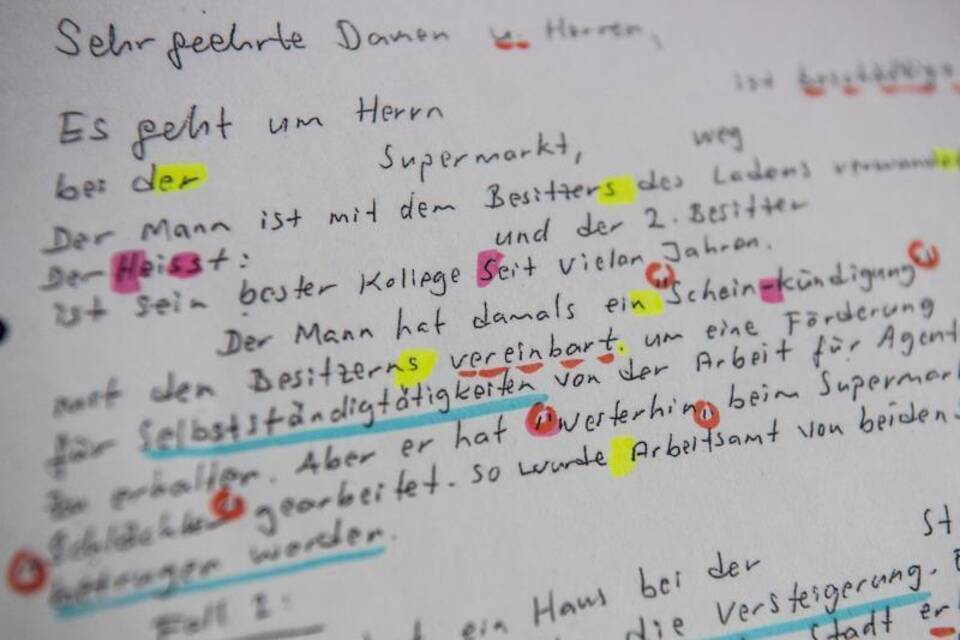 Sehr geehrte Damen u. Herren,
ist beschäftigt
Es geht um Herrn
bei der Supermarkt, weg
Der Mann ist mit dem Besitzers des Ladens verwandet
Der Heisst: und der 2. Besitter
ist sein bester Kollege Seit vielen Jahren.
Der Mann hat damals ein "Schein-kündigung"
mit den Besitzerns vereinbart. um eine Förderung
für Selbstständigtätigkeiten von der Arbeit für Agent
zu erhalten. Aber er hat "Westerhin" beim Supermark
gearbeitet. so wurde Arbeitsamt von beiden
betrogen worden.
St
Fall 2: ein Haus bei der
die Versteigerung.
Stadt er